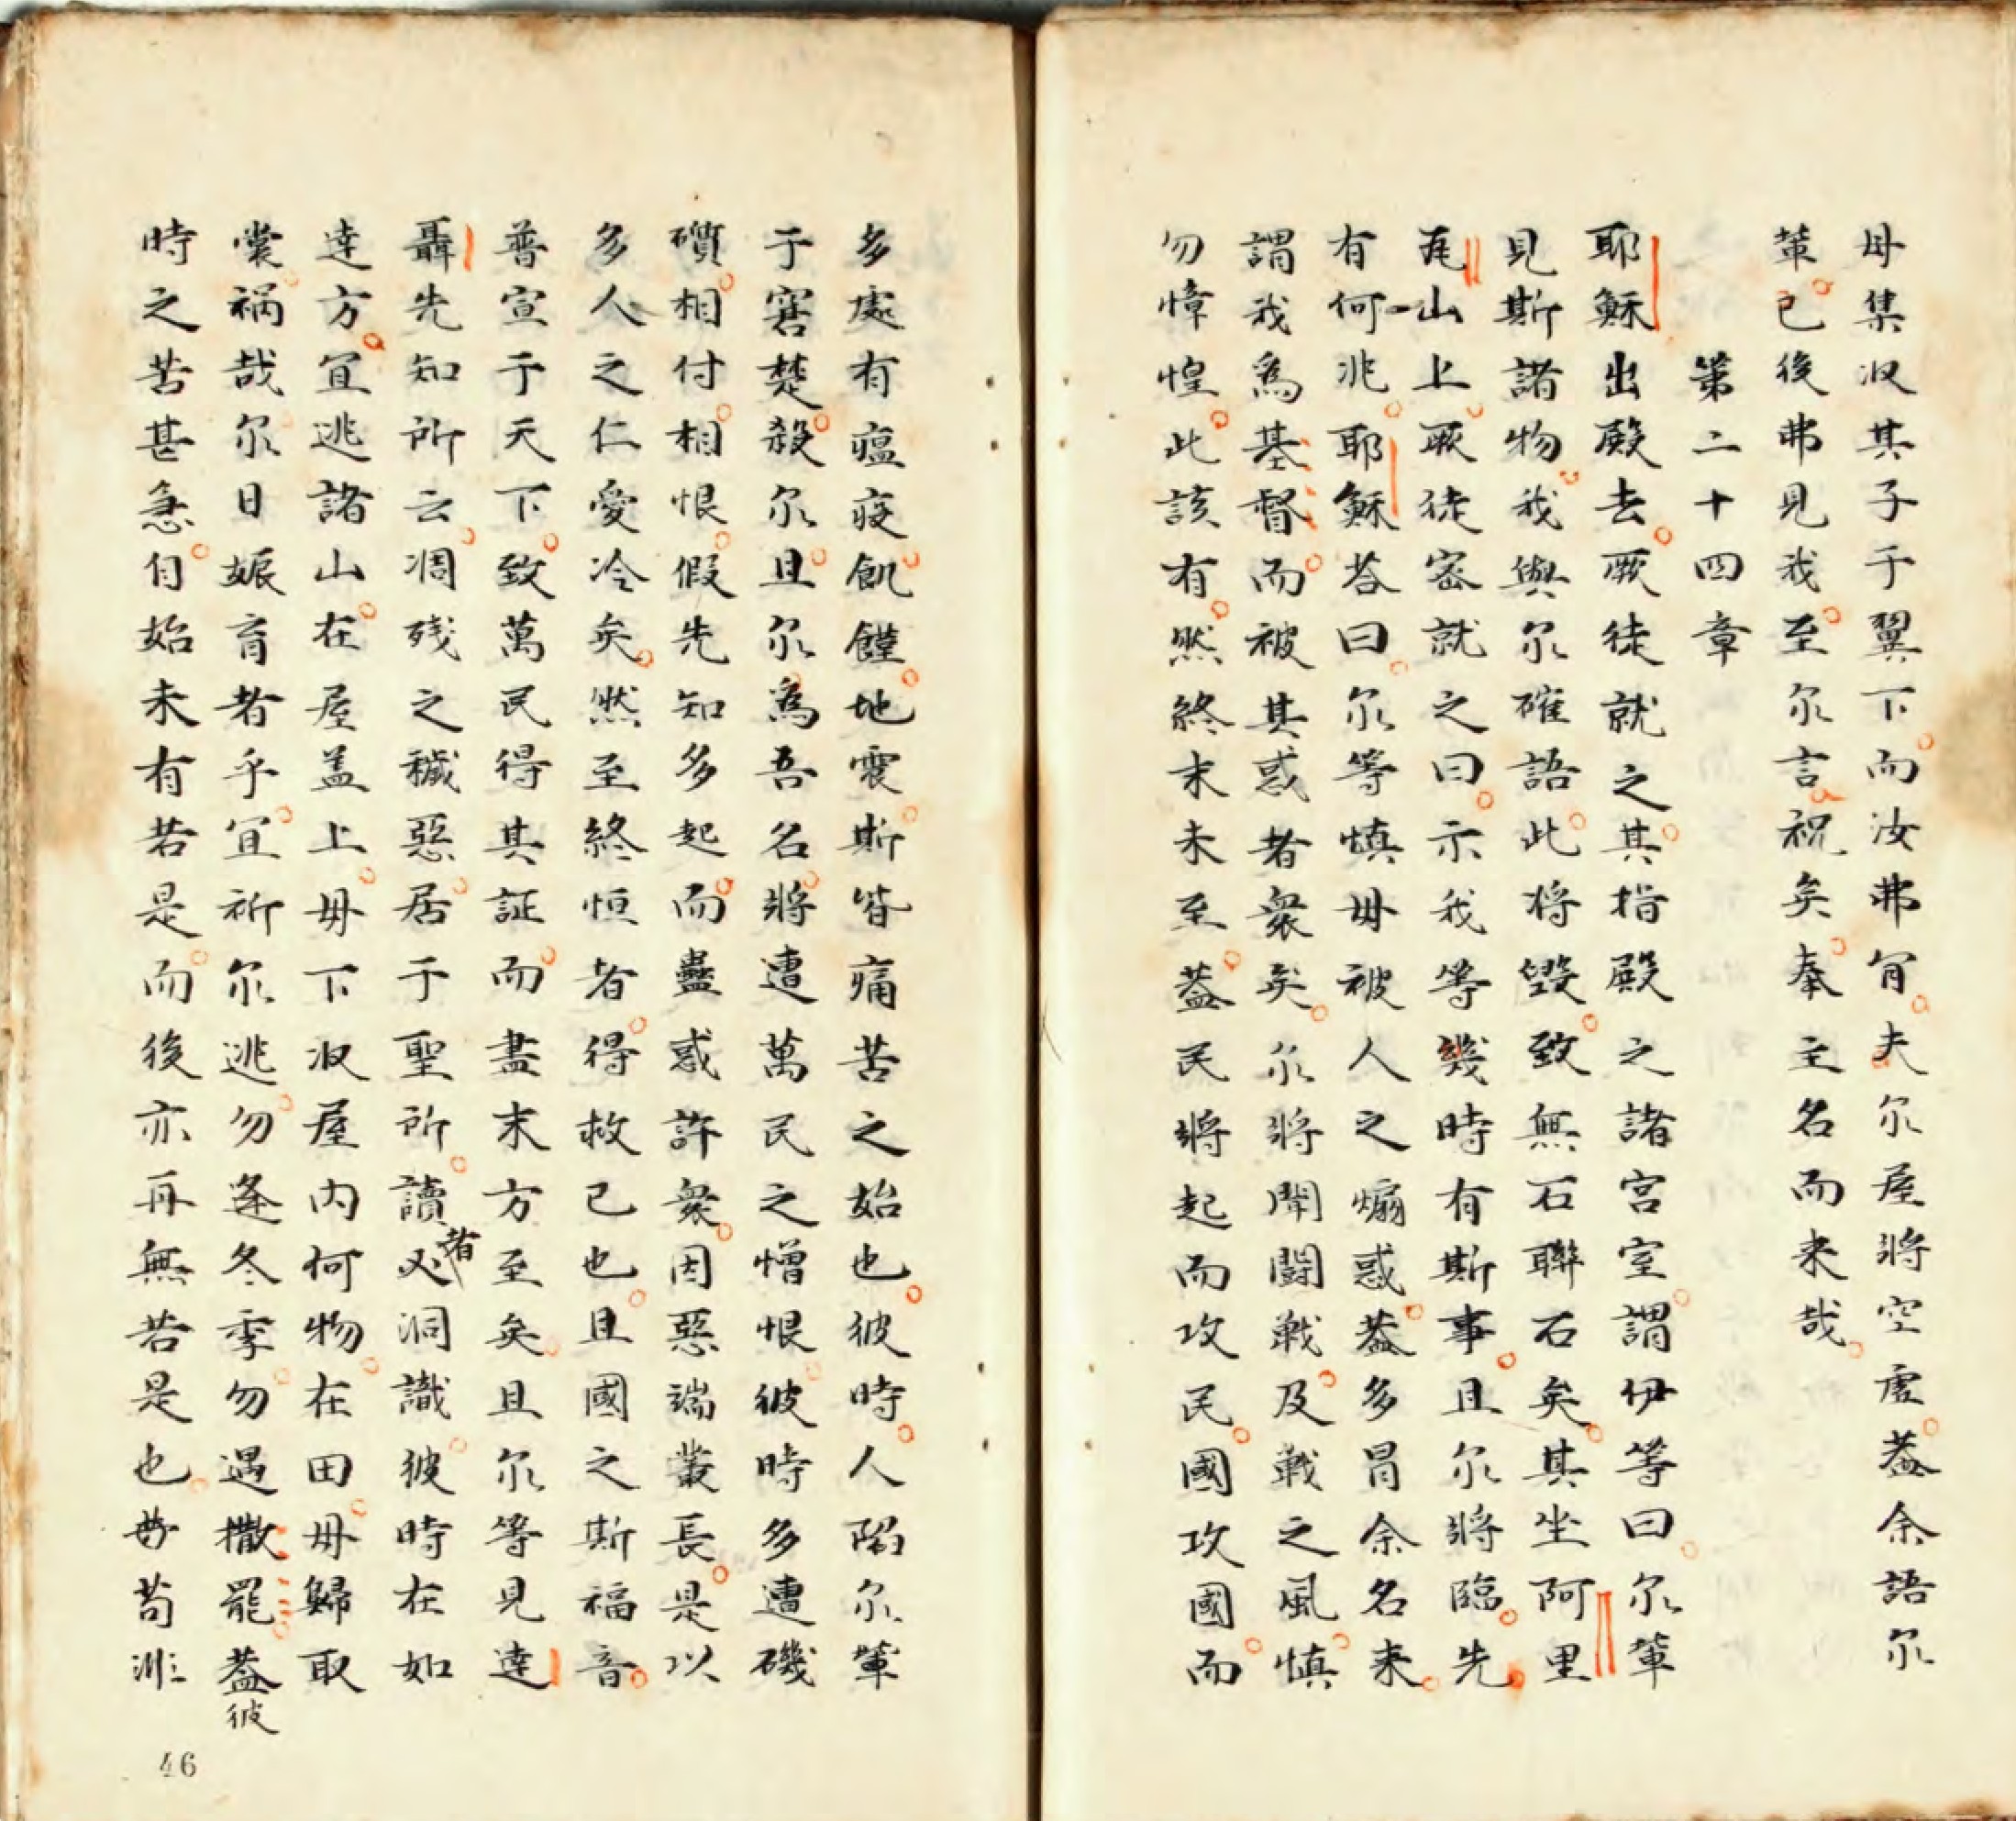 毋集収其子于翼下而汝弗肯夫尔屋將空虗葢余語尔
軰已後弗見我至尔言祝矣奉主名而来哉
第二十四章
耶穌出殿去厥徒就之其指殿之諸宮室謂伊等曰尔軰
見斯諸物我與尔確語此将毀致無石聯石矣其坐阿里
瓦山上厥徒宻就之曰示我等幾時有斯事且尔將臨先
有何兆耶穌荅曰尔等慎毋被人之煽惑葢多冐余名来
謂我為基督而被其惑者衆矣尔將聞鬪戰及戰之風慎
勿慞惶此該有然終末未至葢民將起而攻民國攻國而
多處有瘟疫飢饉地震斯皆痛苦之始也彼時人陷尔軰
于窘楚殺尔且尔為吾名將遭萬民之憎恨彼時多遭磯
礩相付相恨假先知多起而蠱惑許衆因惡端叢長是以
多人之仁愛冷矣然至終恒者得救已也且國之斯福音
普宣于天下致萬民得其証而盡末方至矣且尔等見達
聶先知所云凋残之穢惡居于聖所讀者必洞識彼時在如
達方宜逃諸山在屋盖上毋下収屋内何物在田毋歸取
裳禍哉尔日娠育者乎宜祈尔逃勿逢冬季勿遇撒罷葢彼
時之苦甚急自始未有若是而後亦再無若是也毋苟非
46